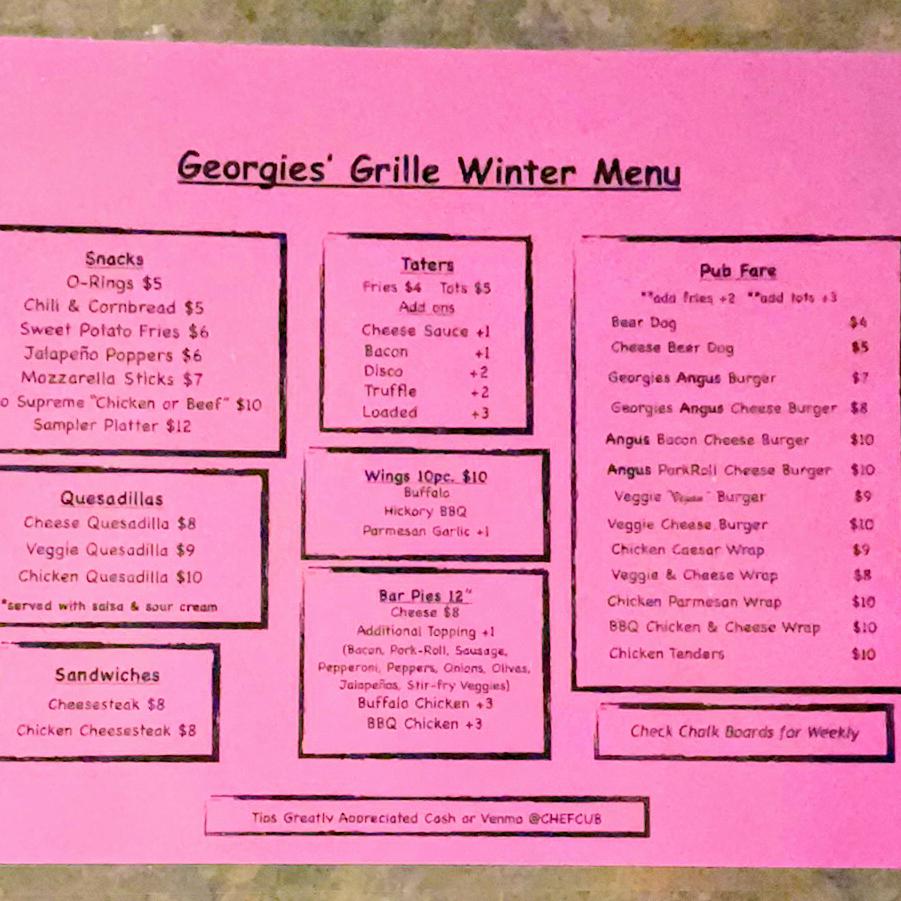 Georgies' Grille Winter Menu
Snacks
O-Rings $5
Chili & Cornbread $5
Sweet Potato Fries $6
Jalapeño Poppers $6
Mozzarella Sticks $7
Supreme "Chicken or Beef" $10
Sampler Platter $12
Quesadillas
Cheese Quesadilla $8
Veggie Quesadilla $9
Chicken Quesadilla $10
*served with salsa & sour cream
Sandwiches
Cheesesteak $8
Chicken Cheesesteak $8
Taters
Fries $4 Tots $5
Add ons
Cheese Sauce +1
Bacon +1
Disco +2
Truffle +2
Loaded +3
Wings 10pc. $10
Buffalo
Hickory BBQ
Parmesan Garlic +1
Bar Pies 12"
Cheese $8
Additional Topping +1
(Bacon, Pork-Roll, Sausage,
Pepperoni, Peppers, Onions, Olives,
Jalapeños, Stir-fry Veggies)
Buffalo Chicken +3
BBQ Chicken +3
Pub Fare
**add fries +2 **add tots +3
Beer Dog $4
Cheese Beer Dog $5
Georgies Angus Burger $7
Georgies Angus Cheese Burger $8
Angus Bacon Cheese Burger $10
Angus PorkRoll Cheese Burger $10
Veggie "Vegan" Burger $9
Veggie Cheese Burger $10
Chicken Caesar Wrap $9
Veggie & Cheese Wrap $8
Chicken Parmesan Wrap $10
BBQ Chicken & Cheese Wrap $10
Chicken Tenders $10
Check Chalk Boards for Weekly
Tips Greatly Appreciated Cash or Venmo @CHEFCUB